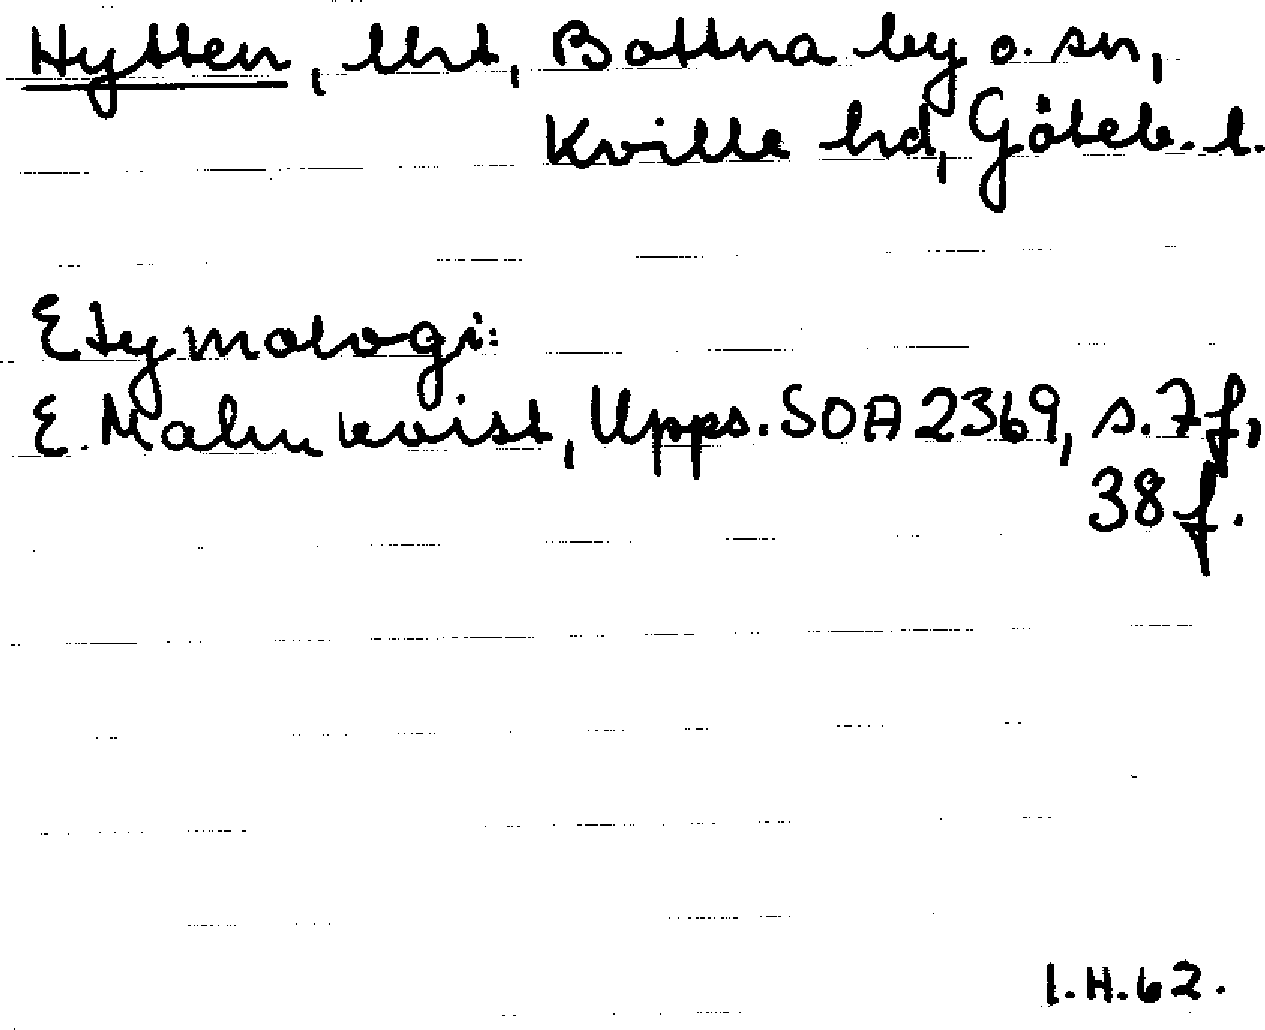 Hytten, lht, Bottna by o. sn,
Kville hd, Göteb. l.
Etymologi:
E. Malmkvist, Upps. SOA 2369, s. 7 f,
38 f.
I.H.62.